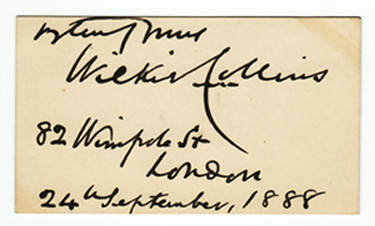 Wilkie Collins
82 Wimpole St
London
24th September, 1888